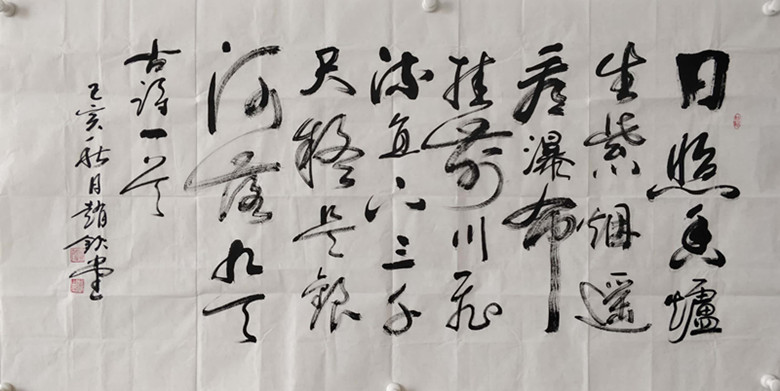 日照香爐
生紫烟遥
看瀑布
挂前川飛
流直下三千
尺疑是銀
河落九天
古詩一首
己亥秋月趙欽堂